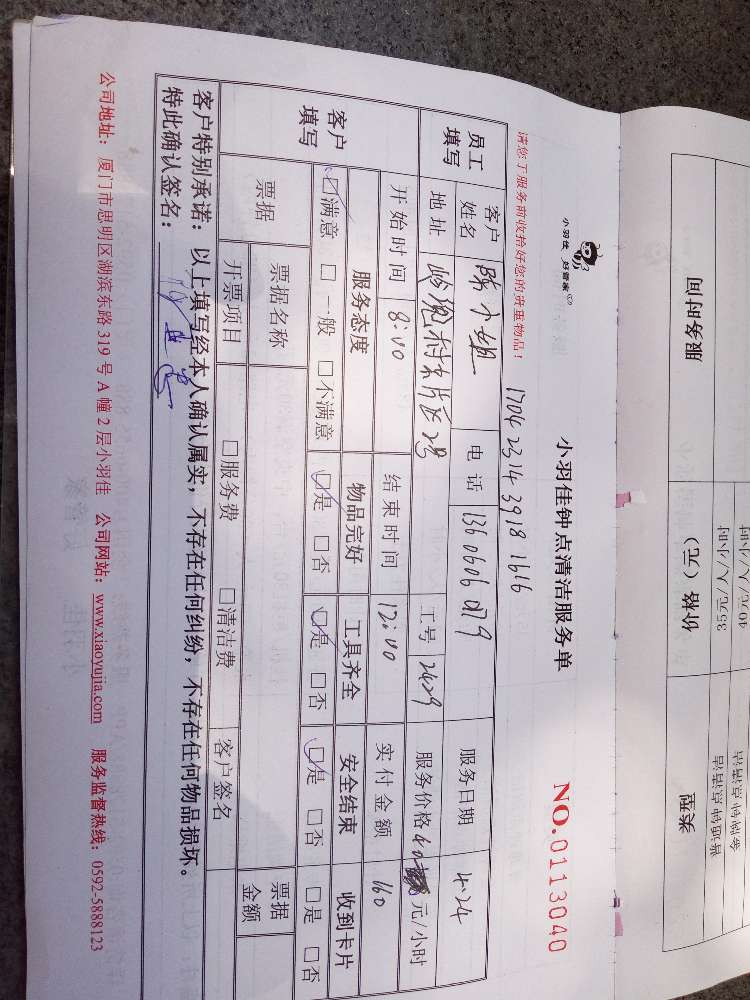 小羽佳 好管家
小羽佳钟点清洁服务单
NO.0113040
请您于服务前收拾好您的贵重物品!
1704 2314 3918 1616
员工填写 客户姓名 陈小姐 电话 服务日期 4.24
地址 岭兜 工号 2429 服务价格 40 元/小时
开始时间 8:00 结束时间 12:00 实付金额 160
客户填写 服务态度 物品完好 工具齐全 安全结束 收到卡片
☑满意 □一般 □不满意 ☑是 □否 ☑是 □否 ☑是 □否 □是 □否
票据 票据名称 票据金额
开票项目 □服务费 □清洁费 客户签名
客户特别承诺:以上填写经本人确认属实,不存在任何纠纷,不存在任何物品损坏。
特此确认签名:
公司地址:厦门市思明区湖滨东路319号A幢2层小羽佳 公司网站:www.xiaoyujia.com 服务监督热线:0592-5888123
类型 价格(元) 服务时间
普通钟点清洁 35元/人/小时
40元/人/小时